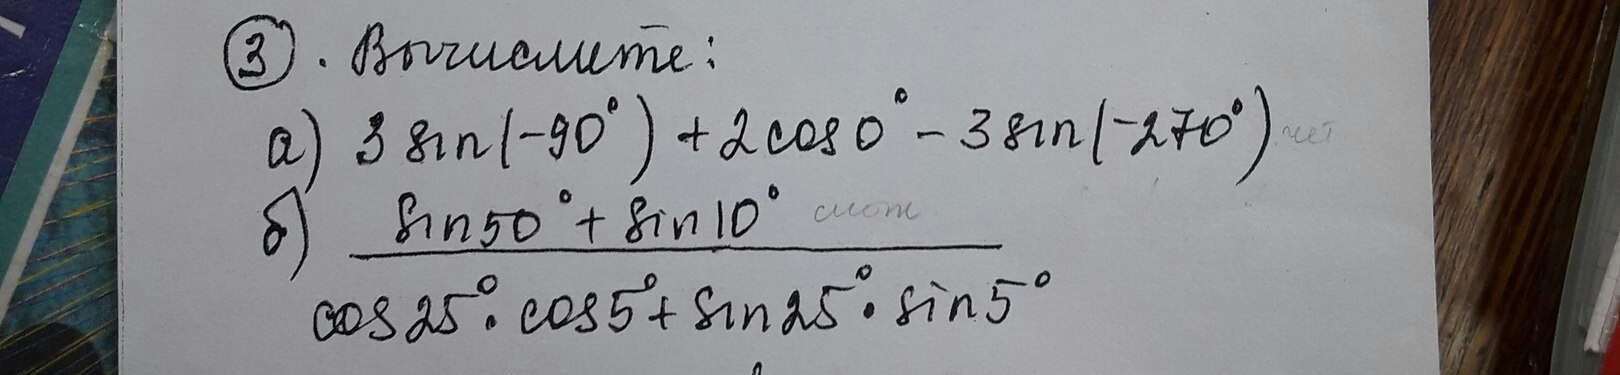 3. Вычислите:
а) 3 sin(-90°) + 2cos0° - 3sin(-270°)
б) sin50° + sin10°
cos25°·cos5° + sin25°·sin5°